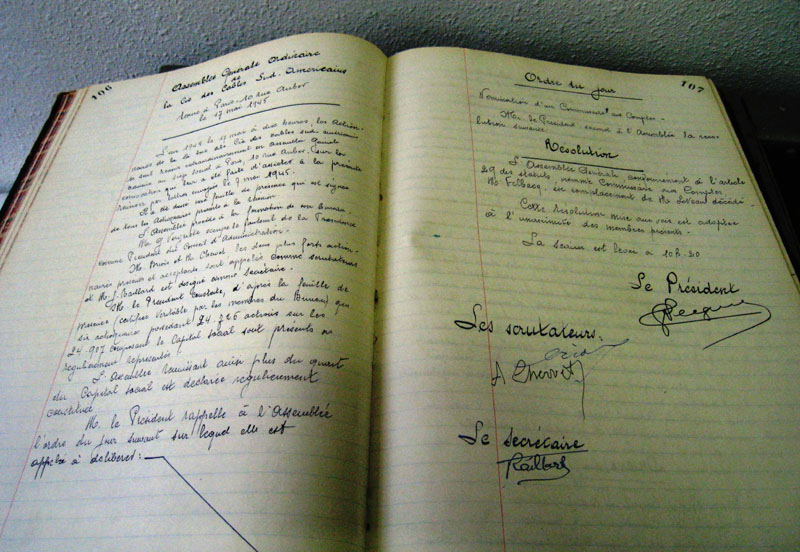 106
Assemblée Générale Ordinaire
de
la Cie des Cables Sud-Américains
tenue à Paris 10 rue Auber
le 17 mai 1945
L'an 1945 le 17 mai à dix heures, les Action-
naires de la Cie des cables sud américains
se sont réunis en assemblée Générale
au siège social à Paris, 10 rue Auber, sur la
convocation qui leur a été faite d'assister à la présente
réunion par lettre envoyée le 7 mai 1945.
Il a été dressé une feuille de présence qui est signée
de tous les Actionnaires présents à la séance.
L'Assemblée procède à la formation de son Bureau.
Mr occupe le fauteuil de la Présidence
comme Président du Conseil d'Administration.
Mr et Mr Chervet les deux plus forts action-
naires présents et acceptants sont appelés comme scrutateurs
et Mr Raillard est désigné comme secrétaire.
Mr le Président constate, d'après la feuille de
présence (certifiée véritable par les membres du Bureau) que
six actionnaires possédant actions sur les
24.997 composant le Capital social sont présents ou
régulièrement représentés.
L'Assemblée réunissant ainsi plus du quart
du Capital social est déclarée régulièrement
constituée.
M. le Président rappelle à l'Assemblée
l'ordre du jour suivant sur lequel elle est
appelée à délibérer:
107
Ordre du jour
Nomination d'un Commissaire aux Comptes.
Mr. le Président soumet à l'Assemblée la réso-
lution suivante
Résolution
L'Assemblée Générale conformément à l'article
29 des statuts nomme Commissaire aux Comptes
M. en remplacement de M. décédé.
Cette résolution mise aux voix est adoptée
à l'unanimité des membres présents.
La séance est levée à 10h.20
Le Président
Les scrutateurs:
A Chervet
Le secrétaire
Raillard